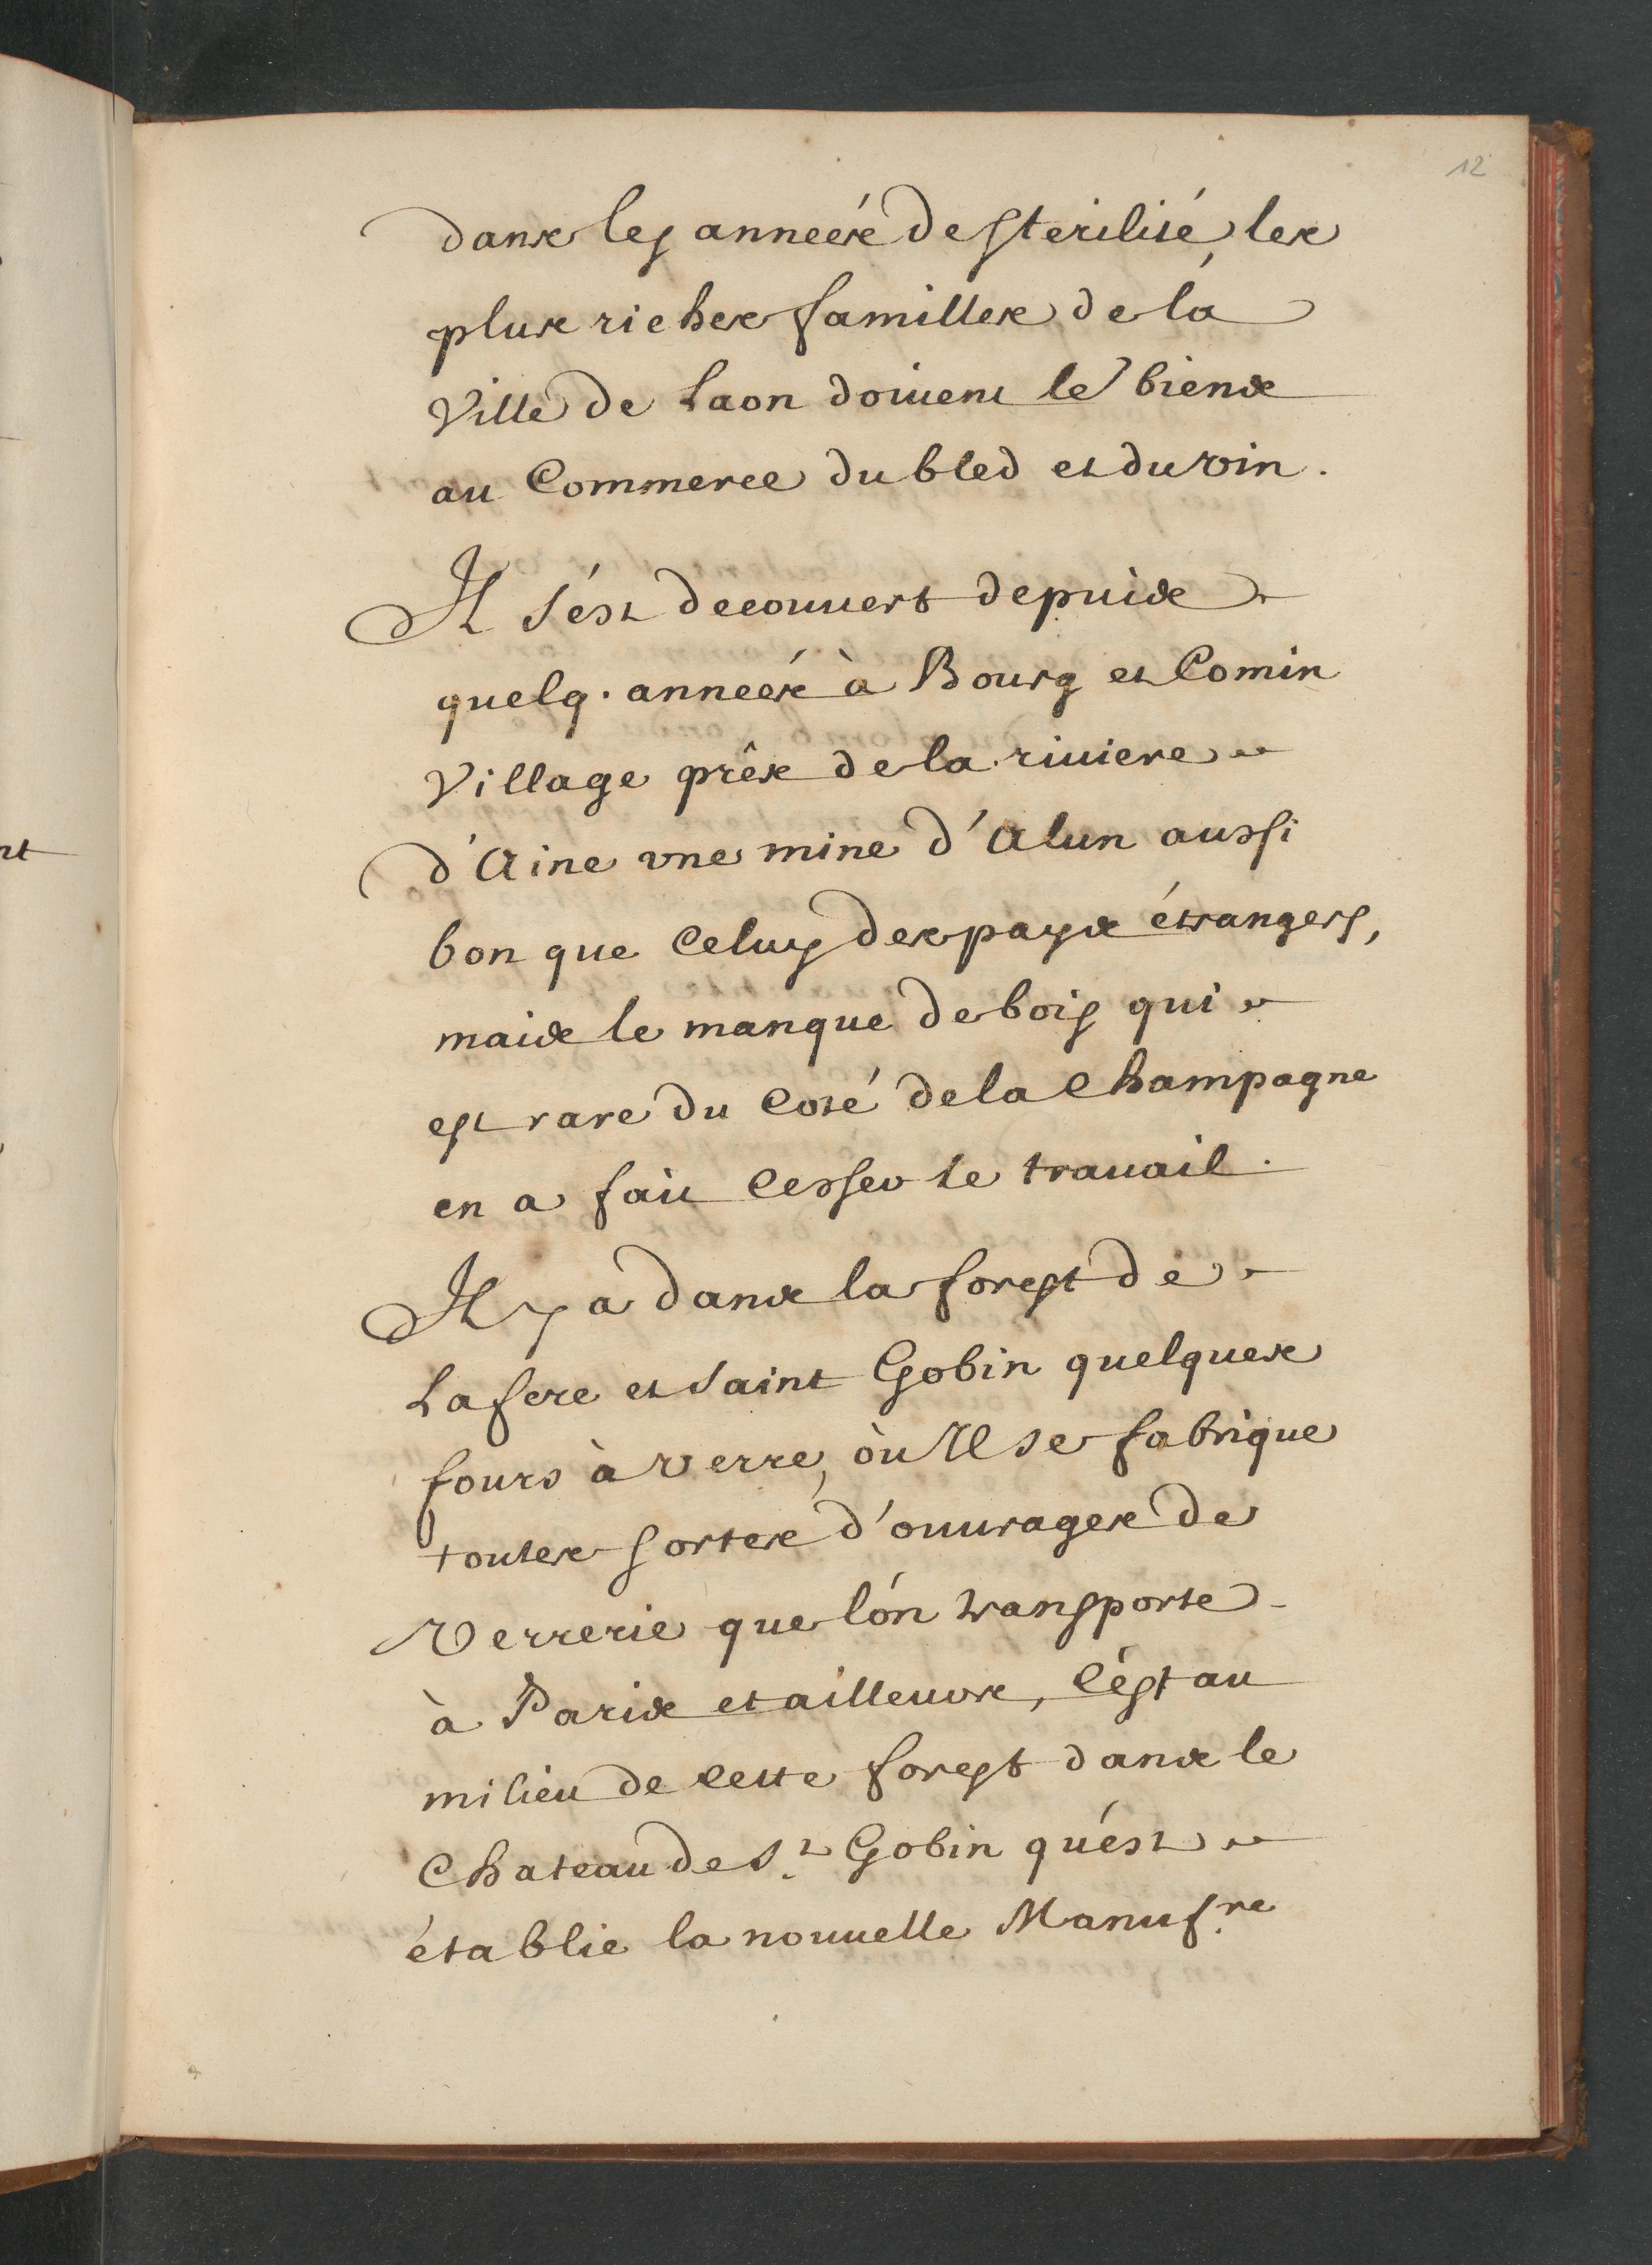 12
dans les anneés de sterilité, les
plus riches familles de la
Ville de Laon doiuent le biens
au Commerce du bled et du vin.
Il s'ést decouuert depuis
quelq. anneés à Bourg et Comin
Village prês de la riuiere
d'Aine vne mine d'Alun aussi
bon que Celuy des pays étrangers,
mais le manque de bois qui
est rare du Costé de la Champagne
en a fait Cesser le trauail.
Il y a dans la forest de
Lafere et Saint Gobin quelques
fours à verre, où Il se fabrique
toutes sortes d'ouurages de
Verrerie que l'ón transporte
à Paris et ailleurs, C'ést au
milieu de Cette forest dans le
Chateau de St. Gobin qu'ést
établie la nouuelle Manufre